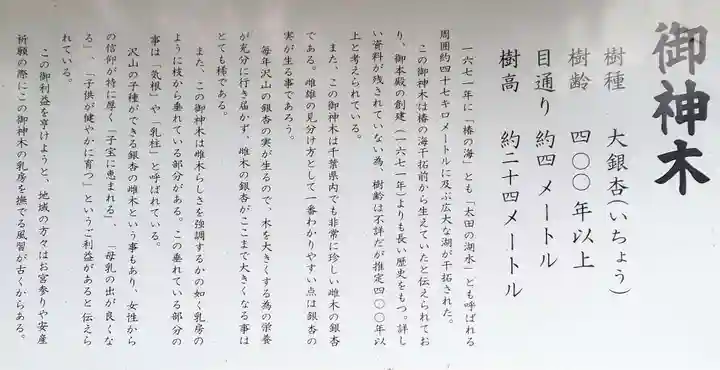 御神木
樹種　大銀杏(いちょう)
樹齢　四〇〇年以上
目通り　約四メートル
樹高　約二十四メートル
一六七一年に「椿の海」とも「太田の湖水」とも呼ばれる
周囲約四十七キロメートルに及ぶ広大な湖が干拓された。
この御神木は椿の海干拓前から生えていたと伝えられてお
り、御本殿の創建(一六七一年)よりも長い歴史をもつ。詳し
い資料が残されていない為、樹齢は不詳だが推定四〇〇年以
上と考えられている。
また、この御神木は千葉県内でも非常に珍しい雌木の銀杏
である。雌雄の見分け方として一番わかりやすい点は銀杏の
実が生る事であろう。
毎年沢山の銀杏の実が生るので、木を大きくする為の栄養
が充分に行き届かず、雌木の銀杏がここまで大きくなる事は
とても稀である。
また、この御神木は雌木らしさを強調するかの如く乳房の
ように枝から垂れている部分がある。この垂れている部分の
事は「気根」や「乳柱」と呼ばれている。
沢山の子種ができる銀杏の雌木という事もあり、女性から
の信仰が特に厚く「子宝に恵まれる」、「母乳の出が良くな
る」、「子供が健やかに育つ」というご利益があると伝えら
れている。
この御利益を享けようと、地域の方々はお宮参りや安産
祈願の際にこの御神木の乳房を撫でる風習が古くからある。